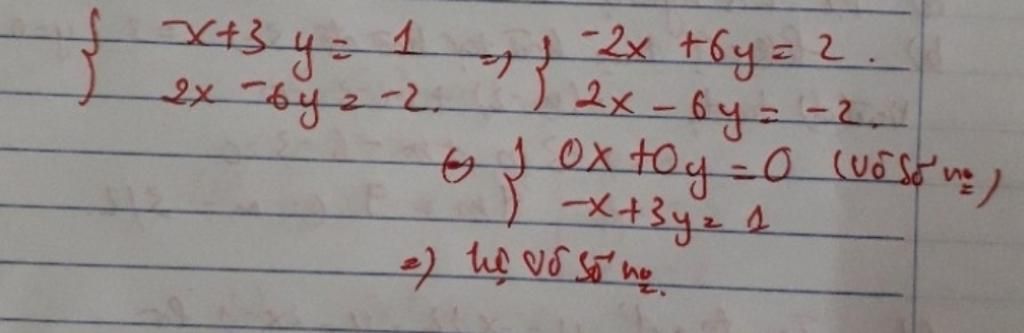 { -x+3y = 1 => { -2x +6y = 2.
2x -6y = -2. 2x - 6y = -2.
<=> { 0x +0y = 0 (vô số no)
-x+3y = 1
=> hệ vô số no.